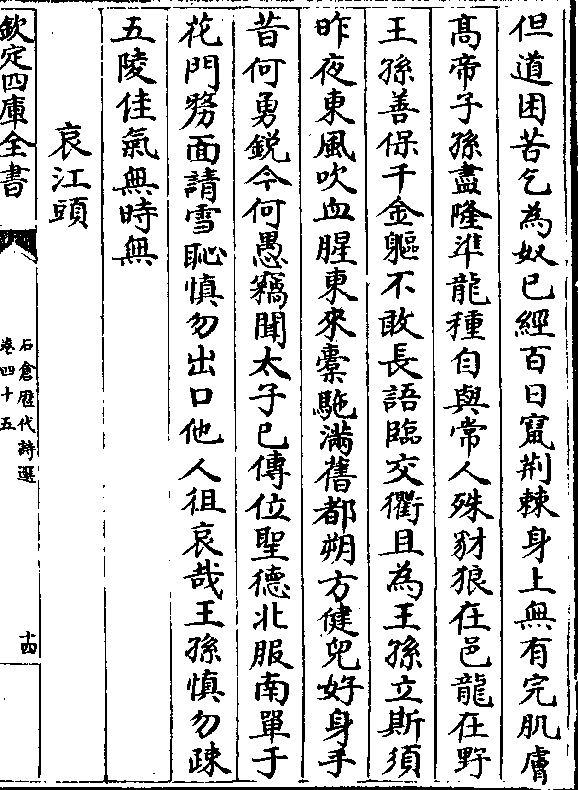 但道困苦乞為奴已經百日竄荆棘身上無有完肌膚
髙帝子孫盡隆準龍種自與常人殊豺狼在邑龍在野
王孫善保千金軀不敢長語臨交衢且為王孫立斯須
昨夜東風吹血腥東來槖駞滿舊都朔方健兒好身手
昔何勇鋭今何愚竊聞太子已傳位聖德北服南單于
花門剺面請雪恥慎勿出口他人狙哀哉王孫慎勿疎
五陵佳氣無時無
哀江頭
欽定四庫全書
石倉歴代詩選
卷四十五
十四